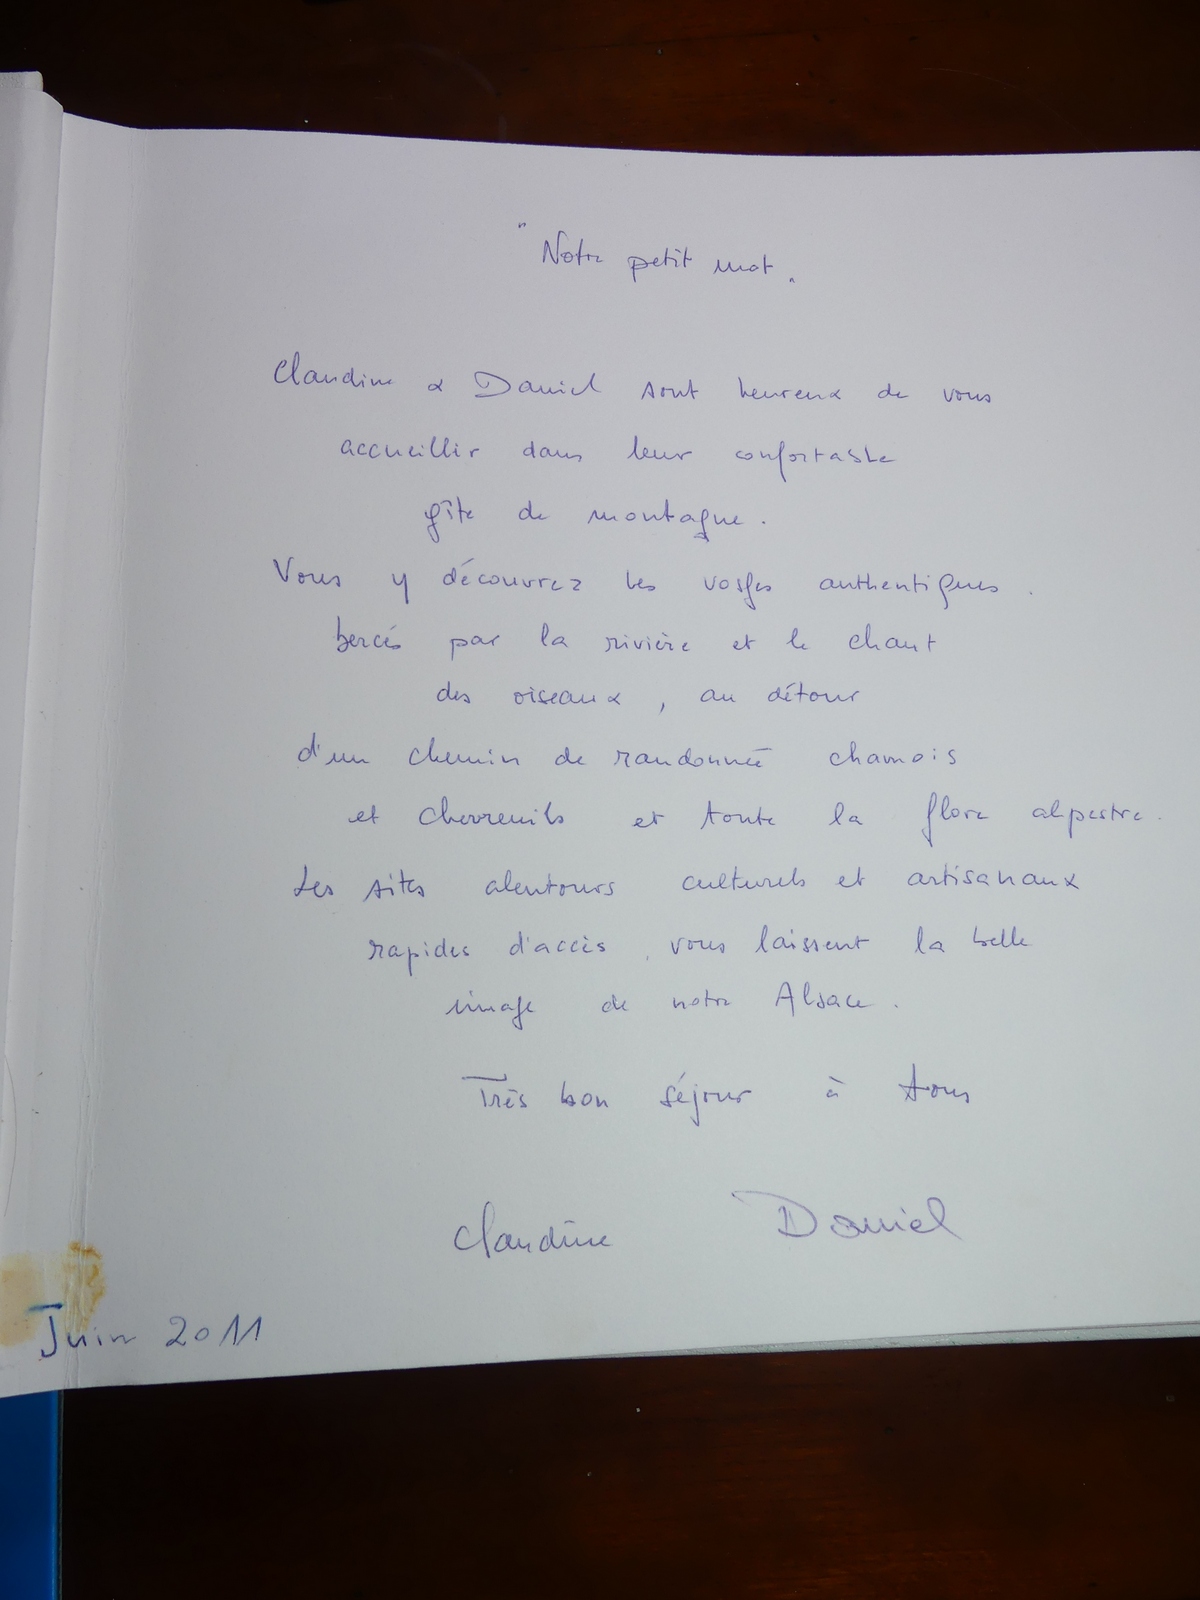 "Notre petit mot"
Claudine & Daniel sont heureux de vous
accueillir dans leur confortable
gîte de montagne.
Vous y découvrez les vosges authentiques.
bercés par la rivière et le chant
des oiseaux, au détour
d'un chemin de randonnée chamois
et chevreuils et toute la flore alpestre.
Les sites alentours culturels et artisanaux
rapides d'accès, vous laissent la belle
image de notre Alsace.
Très bon séjour à tous
Claudine Daniel
Juin 2011